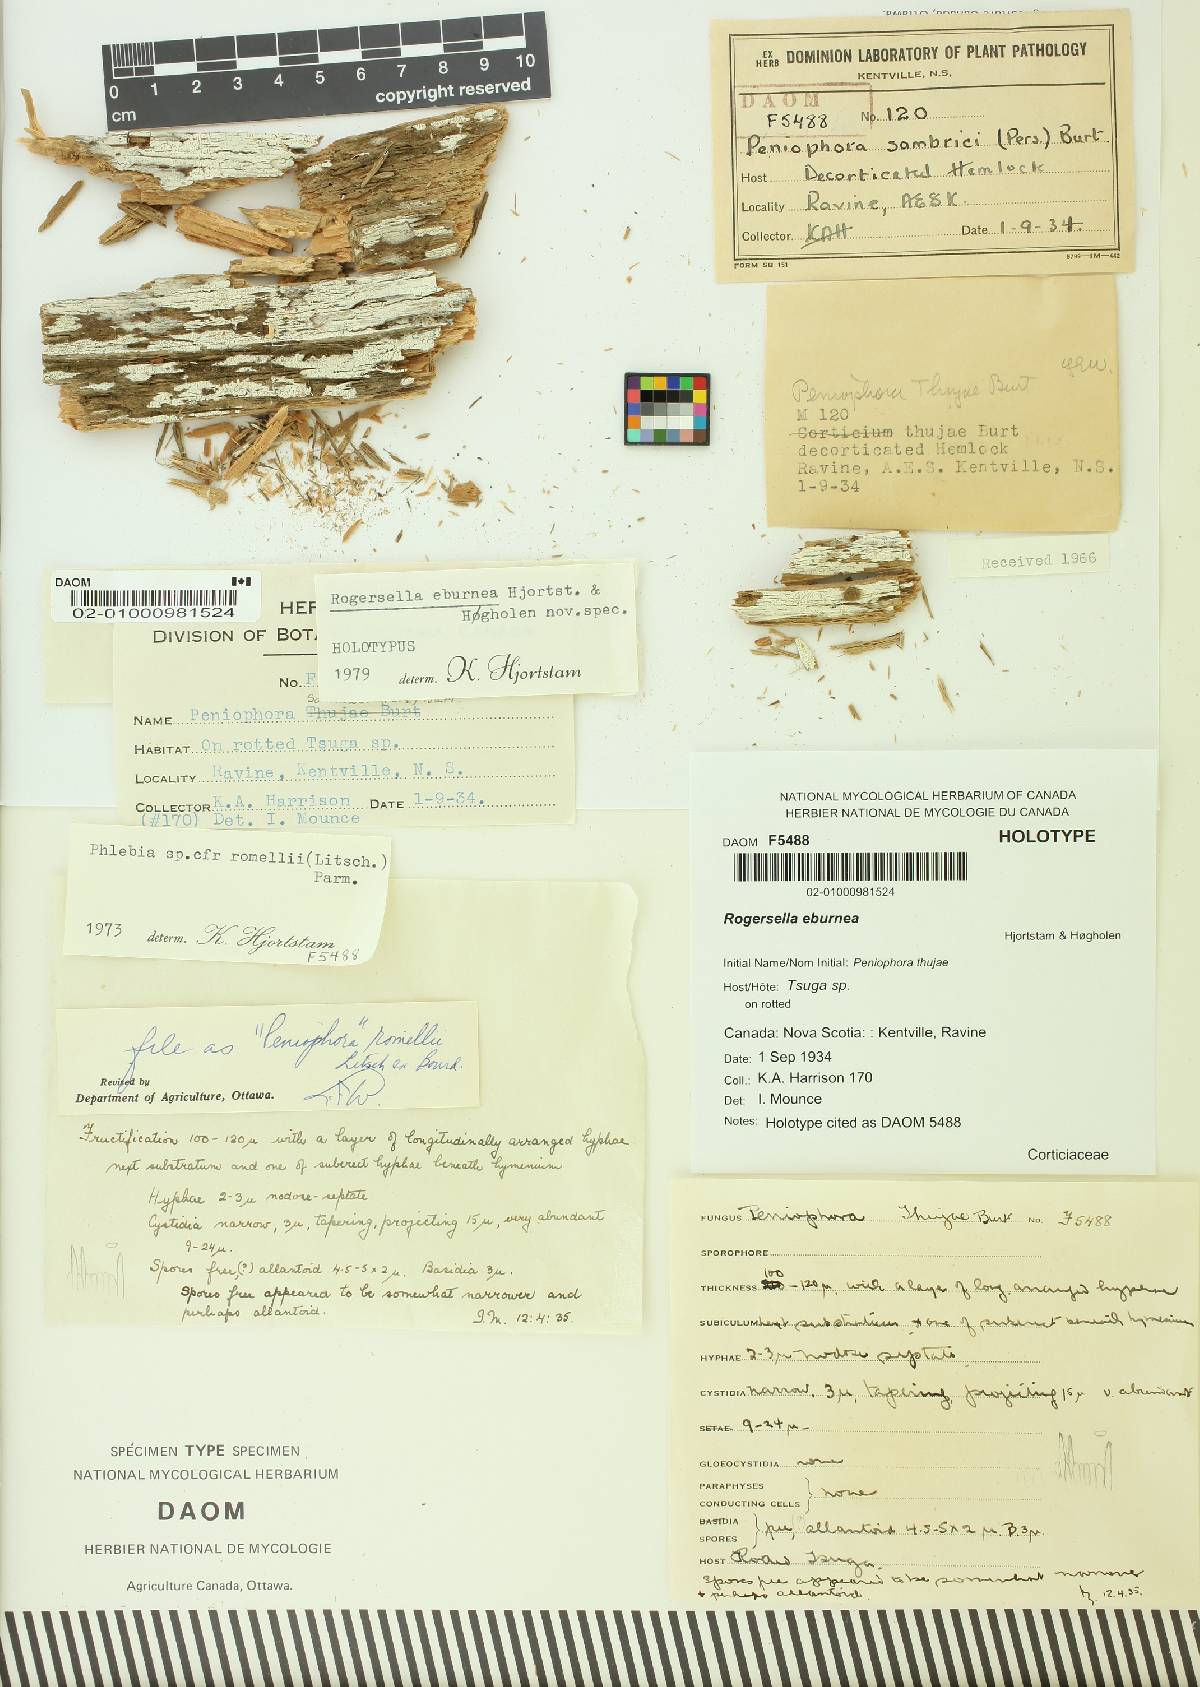 0 1 2 3 4 5 6 7 8 9 10
cm
copyright reserved
EX HERB DOMINION LABORATORY OF PLANT PATHOLOGY
KENTVILLE, N.S.
DAOM
F5488 No. 120
Peniophora sambuci (Pers.) Burt
Host Decorticated Hemlock
Locality Ravine, AESK.
Collector KAH Date 1-9-34.
FORM SB 151
Peniophora Thujae Burt
M 120
Corticium thujae Burt
decorticated Hemlock
Ravine, A.E.S. Kentville, N.S.
1-9-34
Received 1966
DAOM
02-01000981524
DIVISION OF
No. F
NAME Peniophora Thujae Burt
HABITAT On rotted Tsuga sp.
LOCALITY Ravine, Kentville, N. S.
COLLECTOR K.A. Harrison DATE 1-9-34.
(#170) Det. I. Mounce
Rogersella eburnea Hjortst. &
Høgholen nov.spec.
HOLOTYPUS
1979 determ. K. Hjortstam
Phlebia sp.cfr romellii(Litsch.)
Parm.
1973 determ. K. Hjortstam
F5488
file as "Peniophora" romellii
Litsch ex Bourd.
Revised by
Department of Agriculture, Ottawa.
Fructification 100-120µ with a layer of longitudinally arranged hyphae
next substratum and one of suberect hyphae beneath hymenium
Hyphae 2-3µ nodose-septate
Cystidia narrow, 3µ, tapering, projecting 15µ, very abundant
9-24µ.
Spores free,(?) allantoid 4.5-5x2µ. Basidia 3µ.
Spores free appeared to be somewhat narrower and
perhaps allantoid.
I.M. 12:4:35.
SPÉCIMEN TYPE SPECIMEN
NATIONAL MYCOLOGICAL HERBARIUM
DAOM
HERBIER NATIONAL DE MYCOLOGIE
Agriculture Canada, Ottawa.
NATIONAL MYCOLOGICAL HERBARIUM OF CANADA
HERBIER NATIONAL DE MYCOLOGIE DU CANADA
DAOM F5488 HOLOTYPE
02-01000981524
Rogersella eburnea
Hjortstam & Høgholen
Initial Name/Nom Initial: Peniophora thujae
Host/Hôte: Tsuga sp.
on rotted
Canada: Nova Scotia: : Kentville, Ravine
Date: 1 Sep 1934
Coll.: K.A. Harrison 170
Det: I. Mounce
Notes: Holotype cited as DAOM 5488
Corticiaceae
FUNGUS Peniophora Thujae Burt No. F5488
SPOROPHORE
THICKNESS 100-120µ, with a layer of long arranged hyphae
SUBICULUM next substratum + one of suberect beneath hymenium
HYPHAE 2-3µ nodose septate
CYSTIDIA narrow, 3µ, tapering, projecting 15µ v. abundant
SETAE 9-24µ
GLOEOCYSTIDIA none
PARAPHYSES
CONDUCTING CELLS none
BASIDIA
SPORES free, allantoid 4.5-5x2µ. B.3µ.
HOST Tsuga.
Spores free appeared to be somewhat narrower
+ perhaps allantoid. 12.4.35.